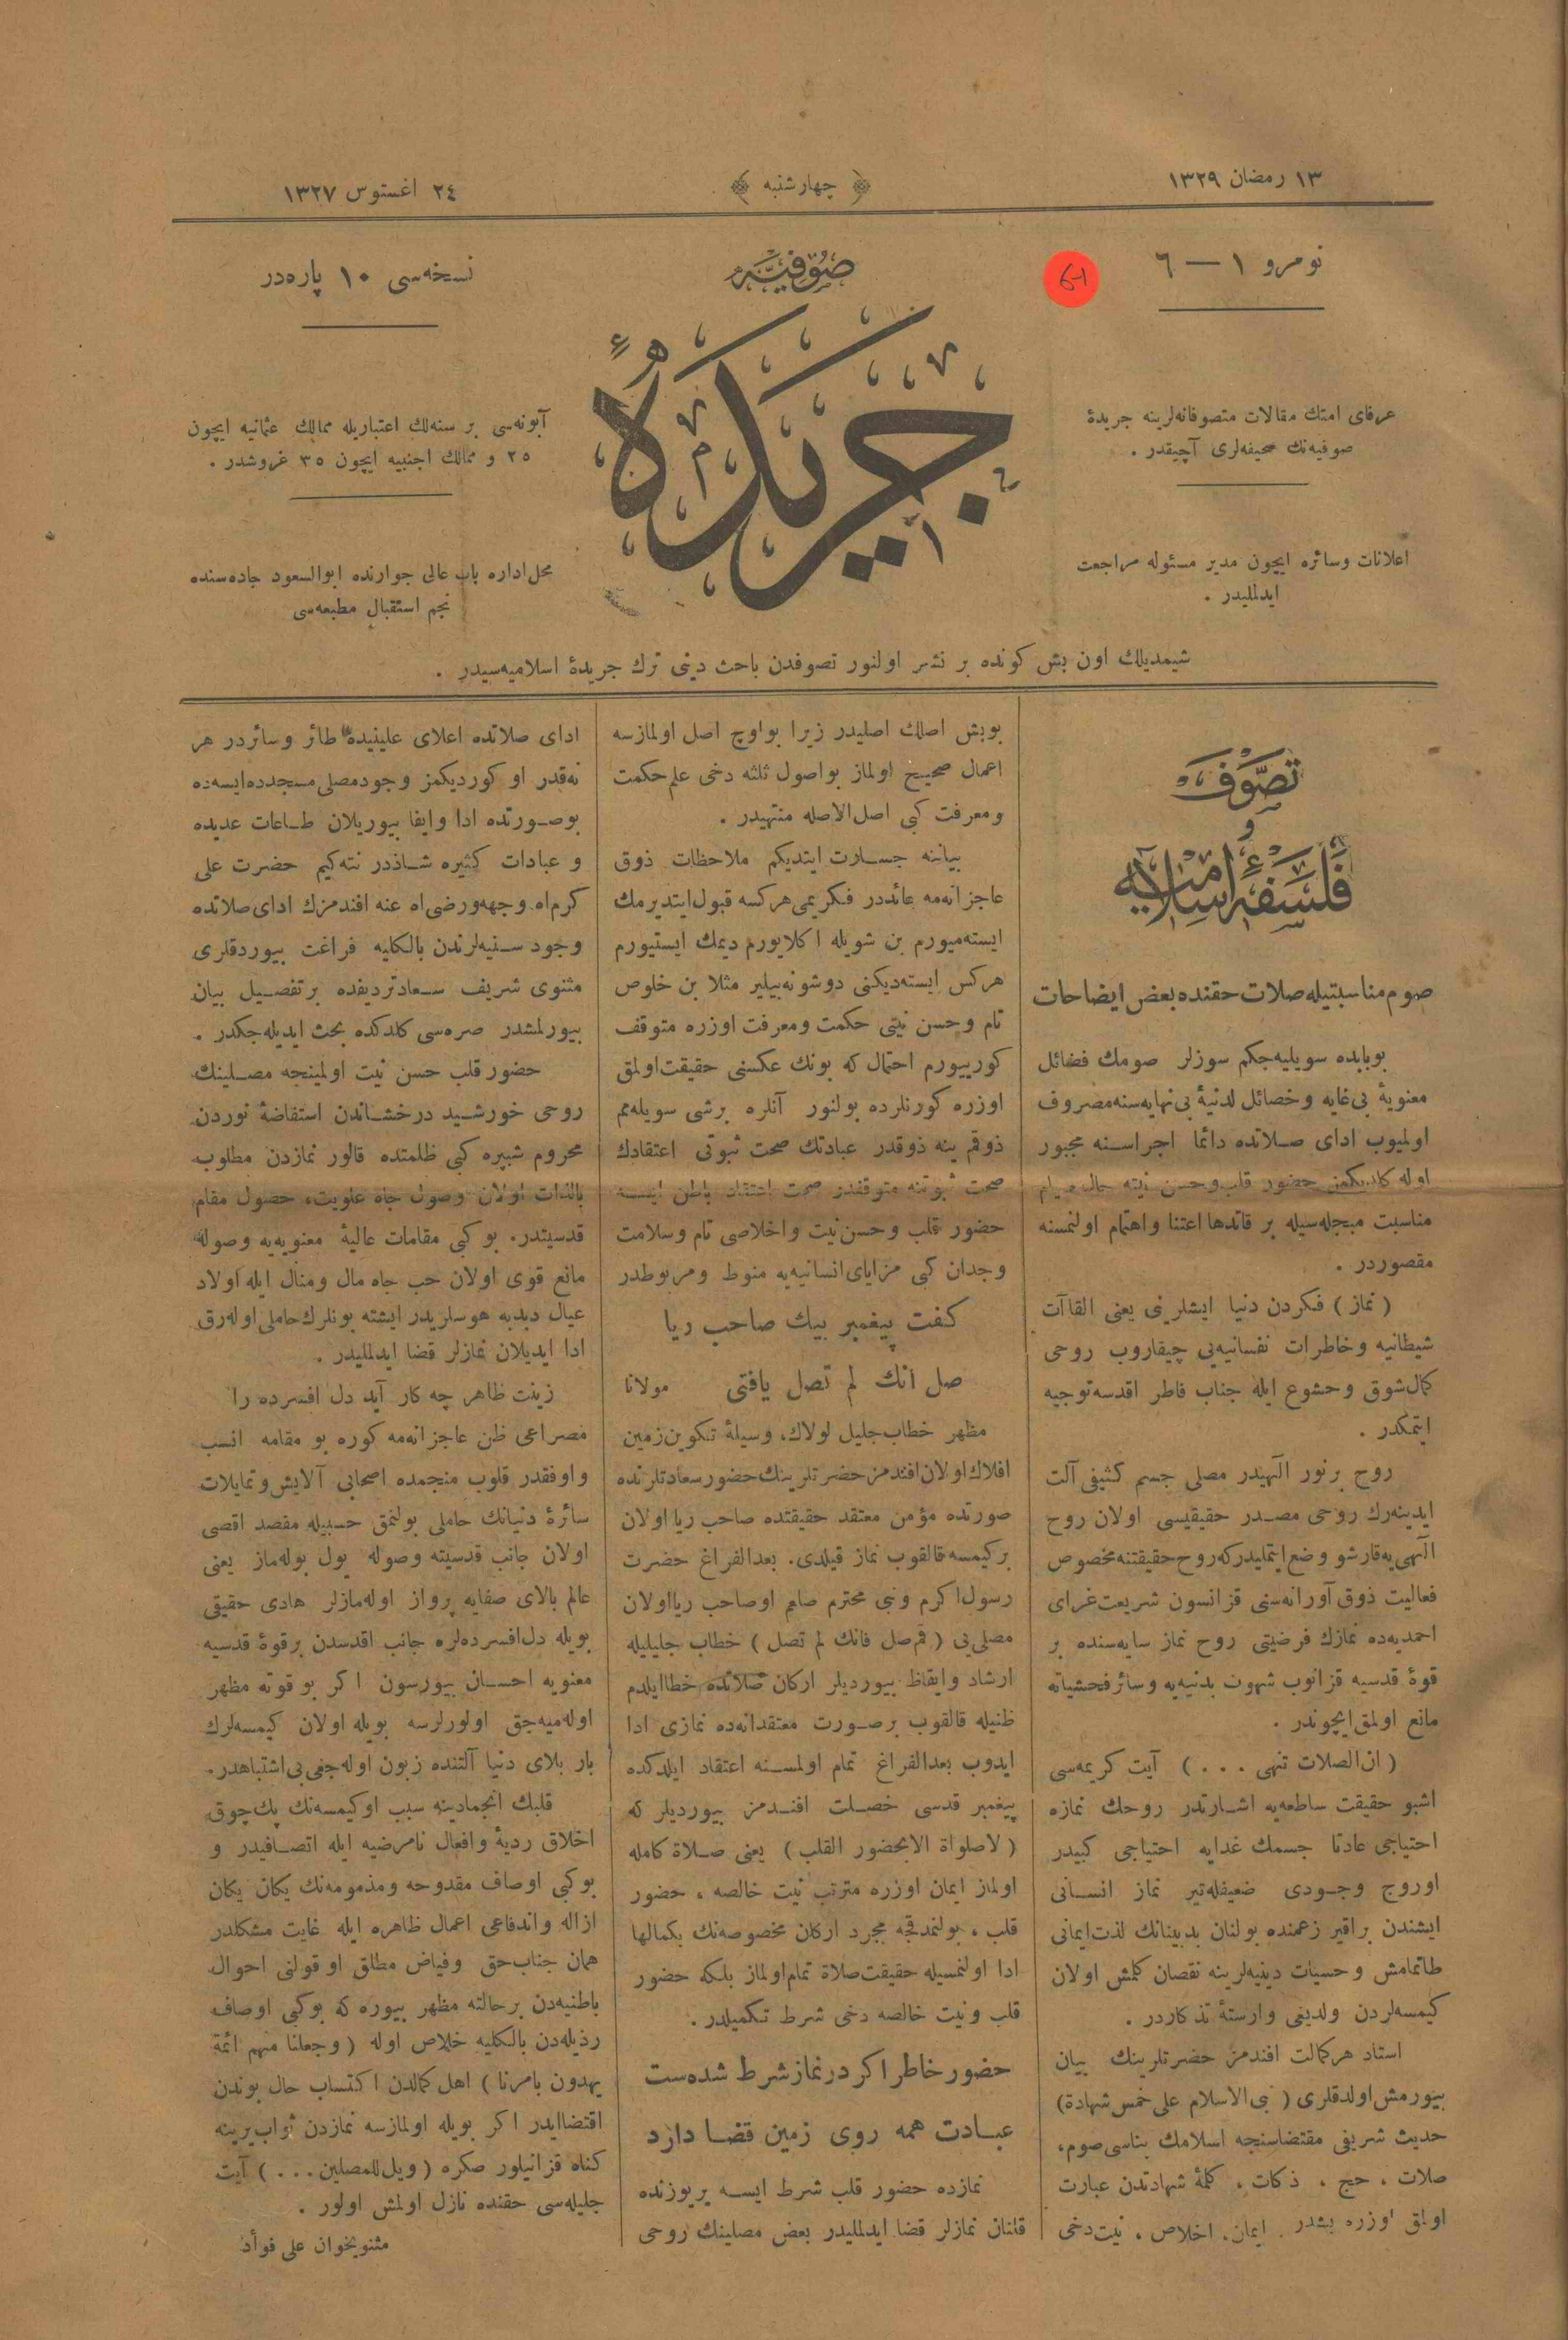 ١٣ رمضان ١٣٢٩
چهارشنبه
٢٤ اغستوس ١٣٢٧
نومرو ١ — ٦
6-1
صوفیه
جریدهٔ
نسخه‌سی ١٠ پاره‌در
عرفای امتك مقالات متصوفانه‌لرینه جریدهٔ
صوفیه‌نك صحیفه‌لری آچیقدر .
اعلانات وسائره ایچون مدیر مسئوله مراجعت
ایدلملیدر .
آبونه‌سی بر سنه‌لك اعتباریله ممالك عثمانیه ایچون
٢٥ و ممالك اجنبیه ایچون ٣٥ غروشدر .
محل اداره باب عالی جوارنده ابوالسعود جاده‌سنده
نجم استقبال مطبعه‌سی
شیمدیلك اون بش كونده بر نشر اولنور تصوفدن باحث دینی ترك جریدهٔ اسلامیه‌سیدر .
تصوّف
و
فلسفهٔ اسلامیه
صوم مناسبتیله صلات حقنده بعض ایضاحات
بوبابده سویلیه‌جكم سوزلر صومك فضائل
معنویهٔ بی‌غایه وخصائل لدنیهٔ بی‌نهایه‌سنه مصروف
اولمیوب ادای صلاتده دائما اجراسنه مجبور
اوله كلدیكمز حضور قلب وحسن نیته جمال صیام
مناسبت مبجله‌سیله بر قاتدها اعتنا واهتمام اولنمسنه
مقصوردر .
( نماز ) فكردن دنیا ایشلرینی یعنی القاآت
شیطانیه وخاطرات نفسانیه‌یی چیقاروب روحی
كمال شوق وخشوع ایله جناب فاطر اقدسه توجیه
ایتمكدر .
روح برنور الٓهیدر مصلی جسم كثیفی آلت
ایدینه‌رك روحی مصدر حقیقیسی اولان روح
الٓهی‌یه قارشو وضع ایتملیدركه روح حقیقتنه مخصوص
فعالیت ذوق آورانه‌سنی قزانسون شریعت غرای
احمدیه‌ده نمازك فرضیتی روح نماز سایه‌سنده بر
قوهٔ قدسیه قزانوب شهوت بدنیه‌یه وسائر فحشیاته
مانع اولمق ایچوندر .
( ان الصلات تنهی . . . ) آیت كریمه‌سی
اشبو حقیقت ساطعه‌یه اشارتدر روحك نمازه
احتیاجی عادتا جسمك غدایه احتیاجی كبیدر
اوروج وجودی ضعیفله‌تیر نماز انسانی
ایشندن براقیر زعمنده بولنان بدبینانك لذت ایمانی
طاتمامش وحسیات دینیه‌لرینه نقصان كلمش اولان
كیمسه‌لردن ولدیغی وارستهٔ تذكاردر .
استاد هركمالت افندمز حضرتلرینك بیان
بیورمش اولدقلری ( بنی الاسلام علی خمس شهادة )
حدیث شریفی مقتضاسنجه اسلامك بناسی صوم،
صلات ، حج ، ذكات ، كلمهٔ شهادتدن عبارت
اولمق اوزره بشدر . ایمان، اخلاص ، نیت دخی
بوبش اصلك اصلیدر زیرا بواوچ اصل اولمازسه
اعمال صحیح اولماز بواصول ثلثه دخی علم حكمت
ومعرفت كبی اصل الاصله منتهیدر .
بیاننه جسارت ایتدیكم ملاحظات ذوق
عاجزانه‌مه عائددر فكریمی هركسه قبول ایتدیرمك
ایسته‌میورم بن شویله اكلایورم دیمك ایستیورم
هركس ایسته‌دیكنی دوشونه‌بیلیر مثلا بن خلوص
تام وحسن نیتی حكمت ومعرفت اوزره متوقف
كورییورم احتمال كه بونك عكسنی حقیقت اولمق
اوزره كورنلرده بولنور آنلره برشی سویله‌مم
ذوقم ینه ذوقدر عبادتك صحت ثبوتی اعتقادك
صحت ثبوتنه متوقفدر صحت اعتقاد باطن ایسه
حضور قلب وحسن نیت واخلاصی تام وسلامت
وجدان كبی مزایای انسانیه‌یه منوط ومربوطدر
كفت پیغمبر بیك صاحب ریا
صل أنك لم تصل یافتی مولانا
مظهر خطاب جلیل لولاك، وسیلهٔ تكوین زمین
افلاك اولان افندمز حضرتلرینك حضور سعادتلرنده
صورتده مؤمن معتقد حقیقتده صاحب ریا اولان
بركیمسه قالقوب نماز قیلدی. بعدالفراغ حضرت
رسول اكرم ونبی محترم صلعم اوصاحب ریا اولان
مصلی‌یی ( قم صل فانك لم تصل ) خطاب جلیلیله
ارشاد وایقاظ بیوردیلر اركان صلاتده خطا ایلدم
ظنیله قالقوب برصورت معتقدانه‌ده نمازی ادا
ایدوب بعدالفراغ تمام اولمسنه اعتقاد ایلدكده
پیغمبر قدسی خصلت افندمز بیوردیلر كه
( لاصلواة الابحضور القلب ) یعنی صلاة كامله
اولماز ایمان اوزره مترتب نیت خالصه ، حضور
قلب ، بولنمدقجه مجرد اركان مخصوصه‌نك بكمالها
ادا اولنمسیله حقیقت صلاة تمام اولماز بلكه حضور
قلب ونیت خالصه دخی شرط تكمیلدر .
حضور خاطر اكر در نماز شرط شده‌ست
عبادت همه روی زمین قضا دارد
نمازده حضور قلب شرط ایسه یریوزنده
قلنان نمازلر قضا ایدلملیدر بعض مصلینك روحی
ادای صلاتده اعلای علیینیده طائر وسائردر هر
نه‌قدر او كوردیكمز وجود مصلی مسجدده ایسه‌ده
بوصورتده ادا وایفا بیوریلان طاعات عدیده
و عبادات كثیره شاذدر نته‌كیم حضرت علی
كرم‌اه وجهه ورضی‌اه عنه افندمزك ادای صلاتده
وجود سنیه‌لرندن بالكلیه فراغت بیوردقلری
مثنوی شریف سعادتردیفده برتفصیل بیان
بیورلمشدر صره‌سی كلدكده بحث ایدیله‌جكدر .
حضور قلب حسن نیت اولمینجه مصلینك
روحی خورشید درخشاندن استفاضهٔ نوردن
محروم شبپره كبی ظلمتده قالور نمازدن مطلوب
بالذات اولان وصول جاه علویت، حصول مقام
قدسیتدر. بو كبی مقامات عالیهٔ معنویه‌یه وصوله
مانع قوی اولان حب جاه مال ومنال ایله اولاد
عیال دبدبه هوسلریدر ایشته بونلرك حاملی اوله‌رق
ادا ایدیلان نمازلر قضا ایدلملیدر .
زینت ظاهر چه كار آید دل افسرده را
مصراعی ظن عاجزانه‌مه كوره بو مقامه انسب
واوفقدر قلوب منجمده اصحابی آلایش وتمایلات
سائرهٔ دنیانك حاملی بولنمق حسبیله مقصد اقصی
اولان جانب قدسیته وصوله یول بوله‌ماز یعنی
عالم بالای صفایه پرواز اوله‌مازلر هادی حقیقی
بویله دل افسرده‌لره جانب اقدسدن برقوهٔ قدسیه
معنویه احسان بیورسون اكر بو قوته مظهر
اوله‌میه‌جق اولورلرسه بویله اولان كیمسه‌لرك
بار بلای دنیا آلتنده زبون اوله‌جغی بی‌اشتباهدر.
قلبك انجمادینه سبب اوكیمسه‌نك پك چوق
اخلاق ردیهٔ وافعال نامرضیه ایله اتصافیدر و
بوكبی اوصاف مقدوحه ومذمومه‌نك یكان یكان
ازاله واندفاعی اعمال ظاهره ایله غایت مشكلدر
همان جناب حق وفیاض مطلق او قولنی احوال
باطنیه‌دن برحالته مظهر بیوره كه بوكبی اوصاف
رذیله‌دن بالكلیه خلاص اوله ( وجعلنا منهم ائمة
یهدون بامرنا ) اهل كمالدن اكتساب حال بوندن
اقتضا ایدر اكر بویله اولمازسه نمازدن ثواب یرینه
كناه قزانیلور صكره ( ویل للمصلین . . . ) آیت
جلیله‌سی حقنده نازل اولمش اولور .
مثنویخوان علی فوأد